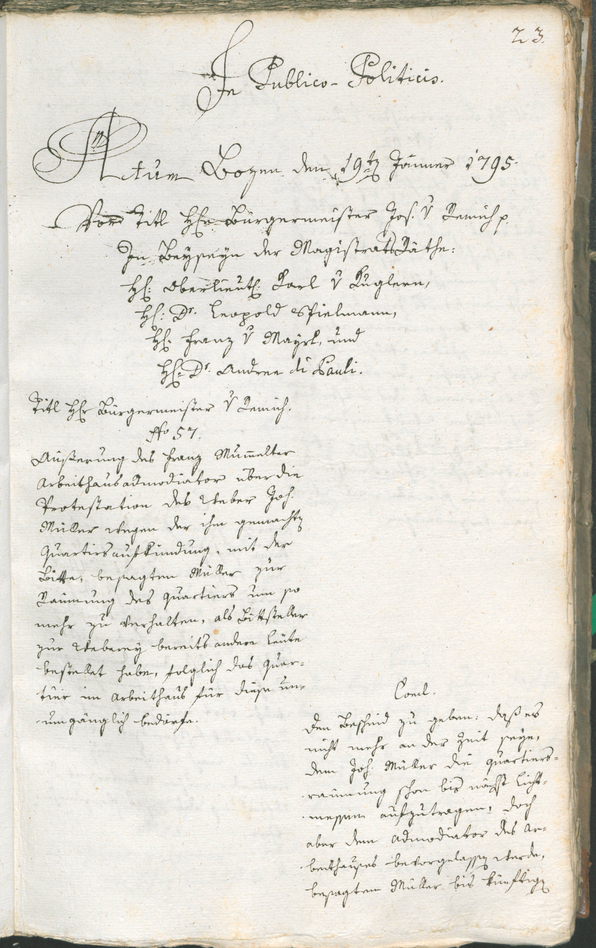 23.
In Publico-Politicis.
Actum Bozen den 19ten Jänner 1795.
Vor Titl Hh: Bürgermeister Jos. v Remich p.
In Beyseyn der Magistrats Räthe:
Hh: Oberlieut: Karl v Kuglern,
Hh: Dr. Leopold Spielmann,
Hh: Franz v Mayrl, und
Hh: Dr. Andree di Pauli.
Titl Hh: Bürgermeister v Remich.
No 57.
Äusserung des Franz Mumelter
Arbeithausadmodiator über die
Protestation des Weber Joh.
Müller wegen der ihm gemachten
Quartiersaufkündung, mit der
Bitte, besagten Müller zur
Räumung des Quartiers um so
mehr zu verhalten, als Bittsteller
zur Weberey bereits andere Leute
bestellet habe, folglich das Quar-
tier im Arbeithaus für diese un-
umgänglich bedarfe.
Concl.
Den Bescheid zu geben, daß es
nicht mehr an der Zeit seye,
dem Joh. Müller die Quartiers-
raumung schon bis nächst Licht-
messen aufzutragen, doch
aber dem Admodiator des Ar-
beithauses bevorgelassen werde,
besagtem Müller bis künftigen